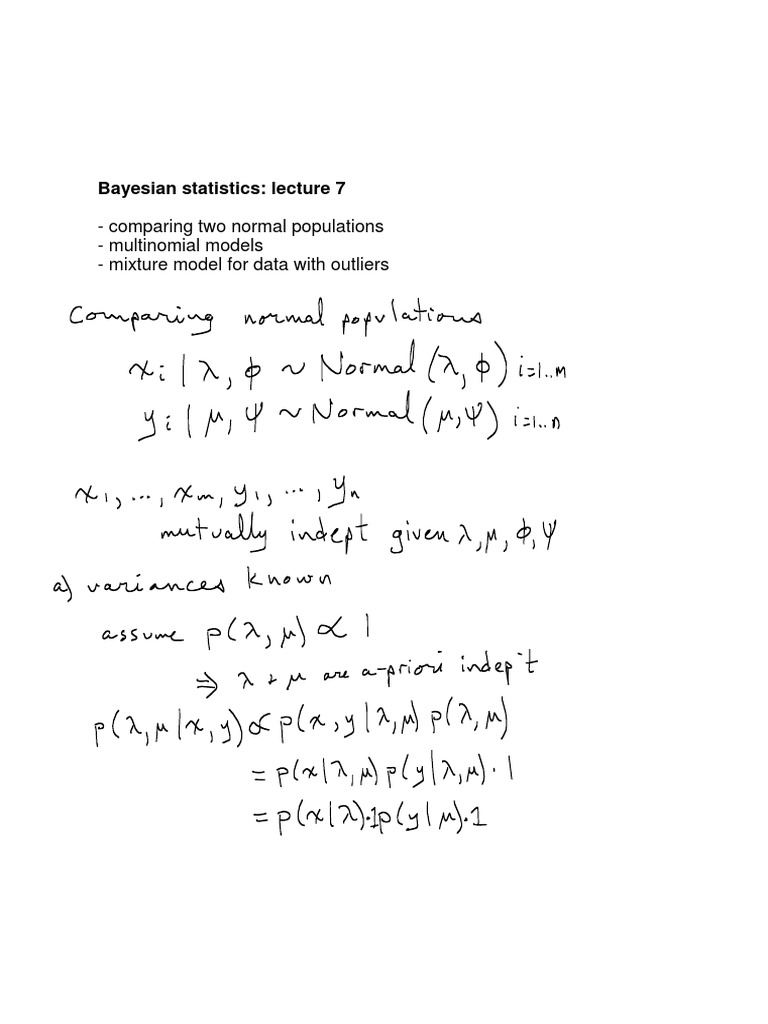 Bayesian statistics: lecture 7
- comparing two normal populations
- multinomial models
- mixture model for data with outliers
Comparing normal populations
xi | λ, ϕ ~ Normal(λ, ϕ) i=1..m
yi | μ, ψ ~ Normal(μ, ψ) i=1..n
x1, ..., xm, y1, ..., yn
mutually indept given λ, μ, ϕ, ψ
a) variances known
assume p(λ, μ) ∝ 1
⇒ λ + μ are a-priori indep't
p(λ, μ | x, y) ∝ p(x, y | λ, μ) p(λ, μ)
= p(x | λ, μ) p(y | λ, μ) · 1
= p(x | λ)·1p(y | μ)·1